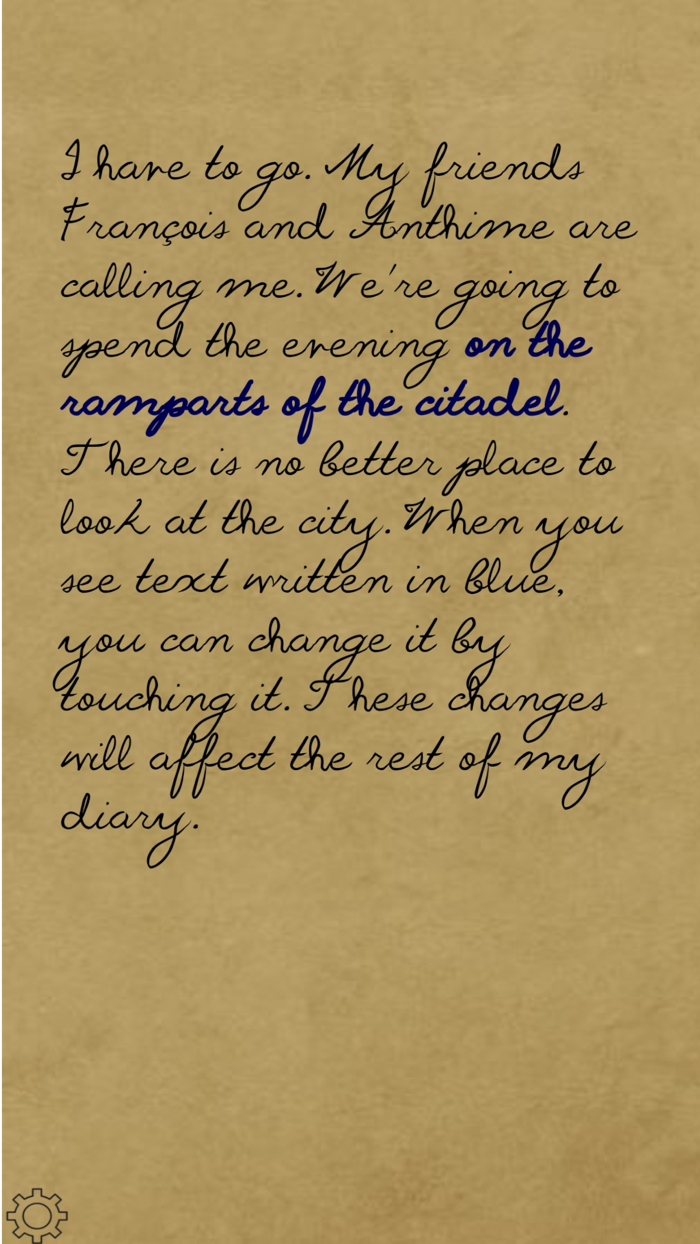 I have to go. My friends
François and Anthime are
calling me. We're going to
spend the evening on the
ramparts of the citadel.
There is no better place to
look at the city. When you
see text written in blue,
you can change it by
touching it. These changes
will affect the rest of my
diary.